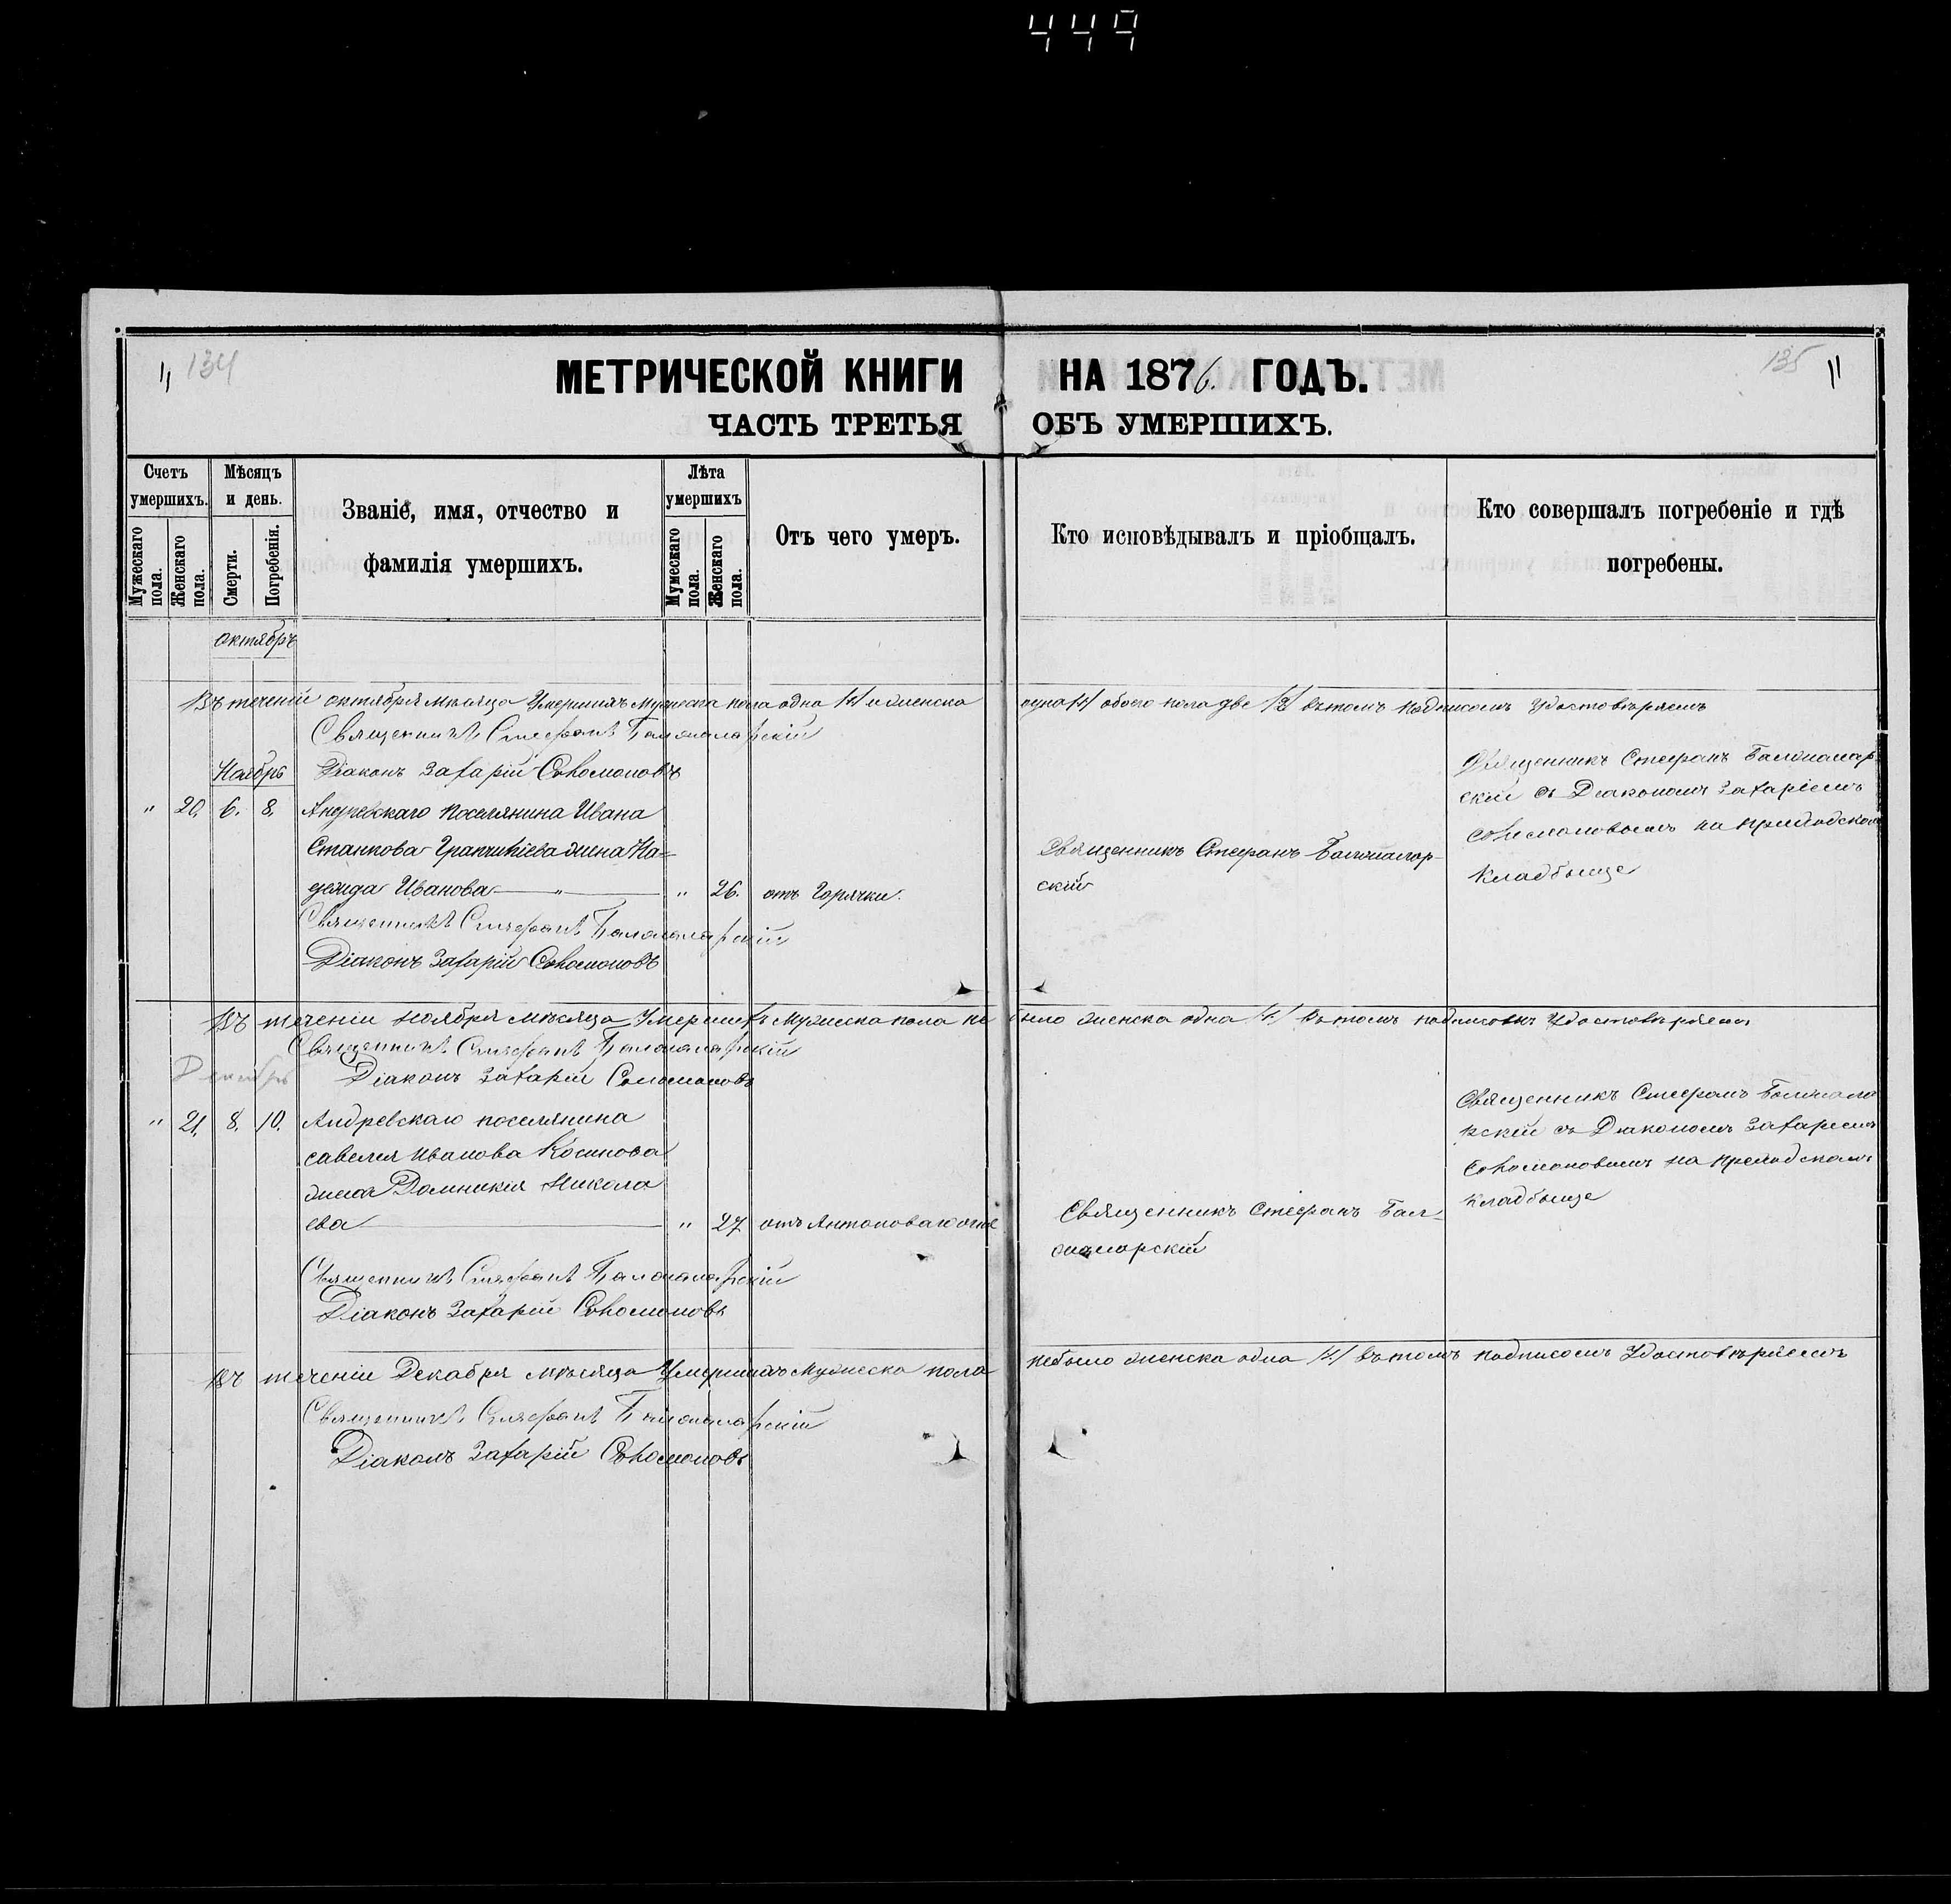 449
134
МЕТРИЧЕСКОЙ КНИГИ НА 1876. ГОДЪ.
135
ЧАСТЬ ТРЕТЬЯ ОБЪ УМЕРШИХЪ.
Счетъ умершихъ.
Мужескаго пола.
Женскаго пола.
Мѣсяцъ и день.
Смерти.
Погребенія.
Званіе, имя, отчество и
фамилія умершихъ.
Лѣта умершихъ
Мумескаго пола.
Женскаго пола.
Отъ чего умеръ.
Кто исповѣдывалъ и пріобщалъ.
Кто совершалъ погребеніе и гдѣ
погребены.
октябрь
Въ теченіи октября мѣсяца Умершихъ мужеска пола одна /1/ и женска одна /1/ обоего пола две /2/ въ томъ подписомъ Удостовѣряемъ
Священникъ Стефанъ
Ноябрь
Діаконъ Захарій Соломоновъ
" 20. 6. 8. Андревскаго поселянина Ивана
Станкова жена На=
дежда Иванова " " 26. отъ Горячки.
Священникъ Стефанъ
скій
Священникъ Стефанъ
скій съ Діакономъ Захаріемъ
Соломоновымъ на приходскомъ
кладбыще
Священникъ Стефанъ
Діаконъ Захарій Соломоновъ
Въ теченіи ноября мѣсяца Умершихъ мужеска пола не было женска одна /1/ въ томъ подписомъ Удостовѣряемъ
Священникъ Стефанъ
Декабрь
Діаконъ Захарій Соломоновъ
" 21. 8. 10. Андревскаго поселянина
савелия Иванова Косинова
жена Домникия Никола
ева " 27 отъ Антоноваго огне
Священникъ Стефанъ
Священникъ Стефанъ
рскій съ Діакономъ Захаріемъ
Соломоновымъ на приходскомъ
кладбыще
Священникъ Стефанъ
Діаконъ Захарій Соломоновъ
Въ теченіи Декабря мѣсяца Умершихъ Мужеска пола небыло женска одна /1/ въ томъ подписомъ Удостовѣряемъ
Священникъ Стефанъ
Діаконъ Захарій Соломоновъ